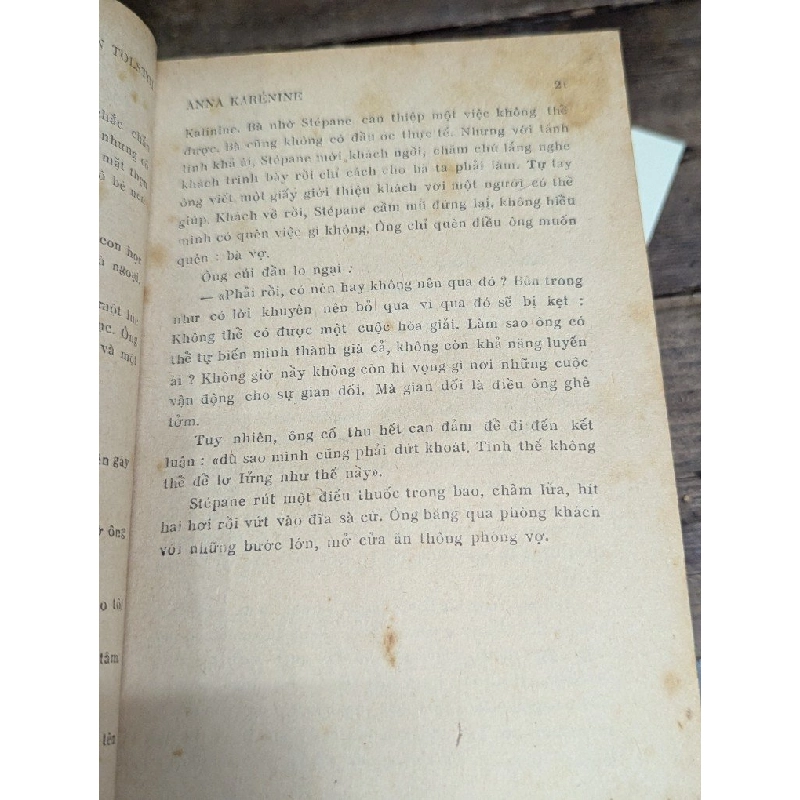 N TOLSTOI
chắc chắn
nhưng cô
mặt thực
ô bé nên
con học
à ngoại,
một lúc
nc. Ông
và một
ên gay
ơ ông
o là
tâm
tên
ANNA KARÉNINE 2
Kalinine. Bà nhờ Stépane can thiệp một việc không thể
được. Bà cũng không có đầu óc thực tế. Nhưng với tánh
tình khả ái, Stépane mời khách ngồi, chăm chú lắng nghe
khách trình bày rồi chỉ cách cho bà ta phải làm. Tự tay
ông viết một giấy giới thiệu khách với một người có thể
giúp. Khách về rồi, Stépane cầm mũ đứng lại, không hiểu
mình có quên việc gì không. Ông chỉ quên điều ông muốn
quên : bà vợ.
Ông cúi đầu lo ngại :
— «Phải rồi, có nên hay không nên qua đó ? Bên trong
như có lời khuyên nên bỏi qua vì qua đó sẽ bị kẹt :
Không thể có được một cuộc hòa giải. Làm sao ông có
thể tự biến mình thành già cả, không còn khả năng luyến
ái ? Không giờ nầy không còn hi vọng gì nơi những cuộc
vận động cho sự gian dối. Mà gian dối là điều ông ghê
tởm.
Tuy nhiên, ông cố thu hết can đảm để đi đến kết
luận : «dù sao mình cũng phải dứt khoát. Tình thế không
thể để lơ lửng như thế nầy».
Stépane rút một điếu thuốc trong bao, châm lửa, hít
hai hơi rồi vứt vào đĩa sà cừ. Ông băng qua phòng khách
với những bước lớn, mở cửa ăn thông phòng vợ.